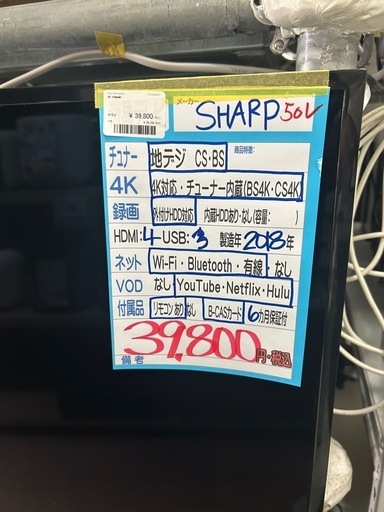 ¥ 39,800
メーカー SHARP 50V
チュナー 地デジ CS・BS 商品特徴:
4K 4K対応・チューナー内蔵(BS4K・CS4K)
録画 外付けHDD対応 内蔵HDDあり・なし(容量: )
HDMI:4 USB:3 製造年2018年
ネット Wi-Fi・Bluetooth・有線・なし
VOD なし YouTube・Netflix・Hulu
付属品 リモコンあり なし B-CASカード 6カ月保証付
39,800円・税込
備考